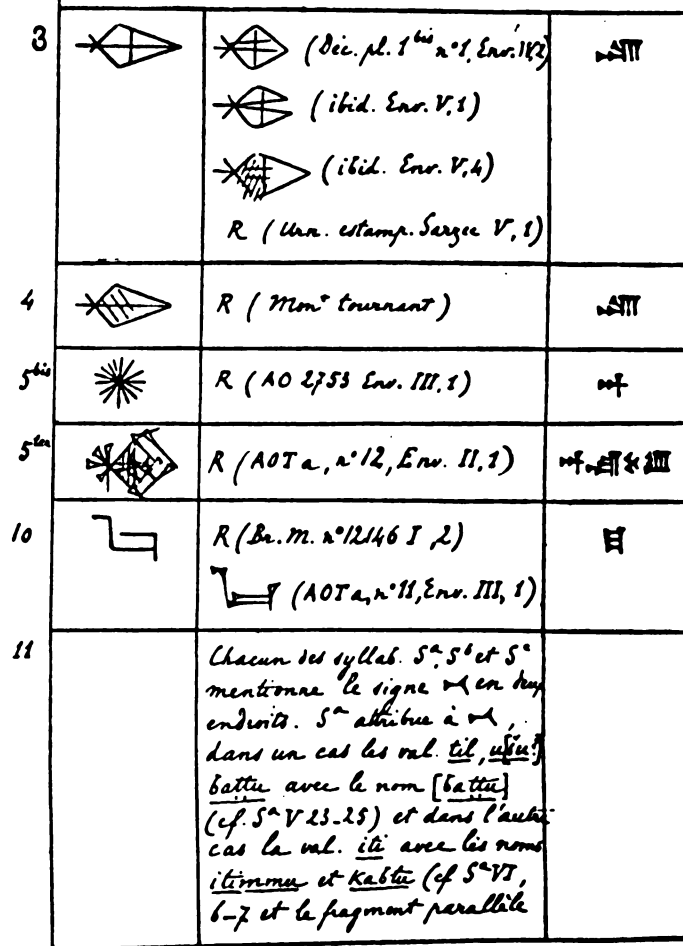 3 (Déc. pl. 1 bis n°1, Env. IV, 2)
(ibid. Env. V, 1)
(ibid. Env. V, 4)
R (Urn. estamp. Sarzec V, 1)
4 R (Mont tournant)
5 bis R (AO 2753 Env. III, 1) 𒀭
5 ter R (AOTa, n°12, Env. II, 1)
10 R (Br. M. n°12146 I, 2)
(AOTa, n°11, Env. III, 1)
11 Chacun des syllab. Sᵃ, Sᵇ et Sᶜ
mentionne le signe en deux
endroits. Sᵃ attribue à ,
dans un cas les val. til,
battu avec le nom [battu]
(cf. Sᵃ V 23-25) et dans l'autre
cas la val. iti avec les noms
itimmu et Kabtu (cf Sᵃ VI,
6-7 et le fragment parallèle